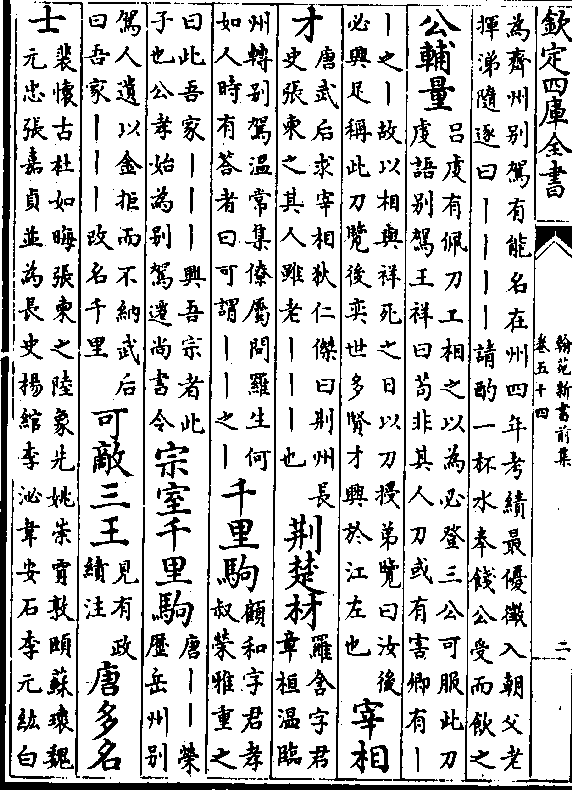 欽定四庫全書
翰苑新書前集
卷五十四
二
為齊州别駕有能名在州四年考績最優徵入朝父老
揮涕隨逐曰丨丨丨丨請酌一杯水奉餞公受而飲之
公輔量
吕䖍有佩刀工相之以為必登三公可服此刀
䖍語别駕王祥曰茍非其人刀或有害卿有丨
丨之丨故以相與祥死之日以刀授弟覽曰汝後
必興足稱此刀覽後奕世多賢才興於江左也
宰相
才
唐武后求宰相狄仁傑曰荆州長
史張柬之其人雖老丨丨丨丨也
荆楚材
羅含字君
章桓温臨
州轉别駕温常集僚屬問羅生何
如人時有答者曰可謂丨丨之丨
千里駒
顧和字君孝
叔榮雅重之
曰此吾家丨丨丨興吾宗者此
子也公孝始為别駕遷尚書令
宗室千里駒
唐丨丨榮
歴岳州别
駕人遺以金拒而不納武后
曰吾家丨丨丨改名千里
可敵三王
見有政
績注
唐多名
士
裴懷古杜如晦張柬之陸象先姚崇賈敦頤蘇瓌魏
元忠張嘉貞並為長史楊綰李泌韋安石李元紘白